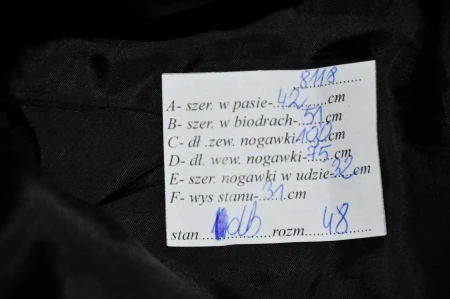 8118
A- szer. w pasie-42 cm
B- szer. w biodrach-51 cm
C- dł .zew. nogawki-100 cm
D- dł. wew. nogawki-75 cm
E- szer. nogawki w udzie-32 cm
F- wys stanu-31 cm
stan db rozm. 48